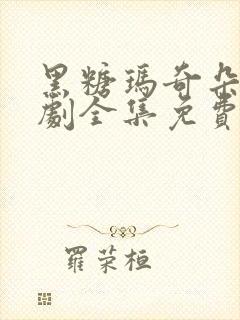 黑糖瑪奇朵
劇全集免費
羅荣桓